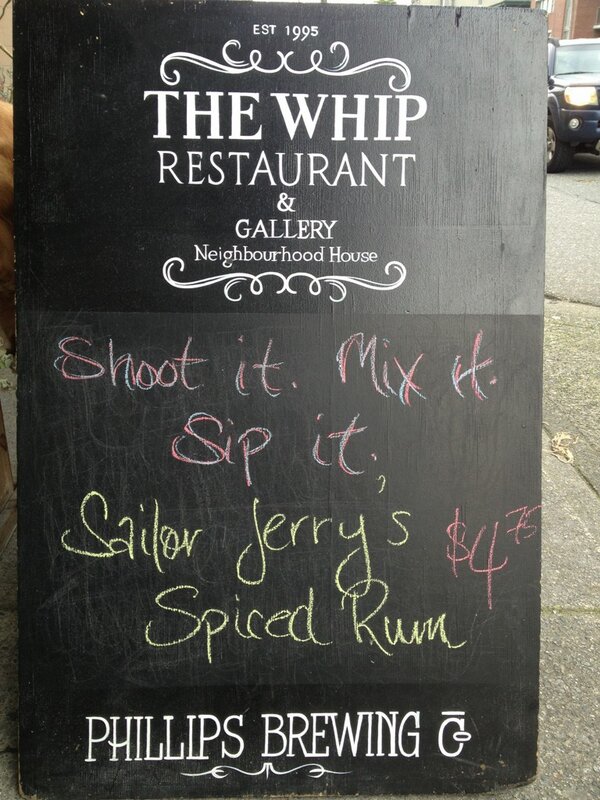 EST 1995
THE WHIP
RESTAURANT
&
GALLERY
Neighbourhood House
Shoot it. Mix it.
Sip it.
Sailor Jerry's $4.75
Spiced Rum
PHILLIPS BREWING Co